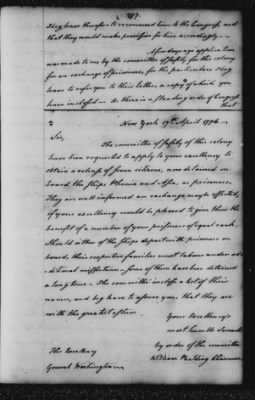 I beg leave therefore to recommend him to the Congress and
that they would make provision for him accordingly.—
A few days ago application
was made to me by the committee of safety for this colony
for an exchange of prisoners, for the particulars I beg
leave to refer you to their letter, a copy of which you
have inclosed — as there is a standing order of Congress
that
New York 17th April 1776
Sir,
The committee of safety of this colony
have been requested to apply to your excellency to
obtain a release of four citizens, now detained on
board the ships Phenix and Asia, as prisoners,
They are well informed an exchange may be effected,
if your excellency would be pleased to give them the
benefit of a number of your prisoners of equal rank.
Should either of the ships depart with prisoners on
board, their respective families must labour under ad-
ditional misfortunes— some of them have been detained
a long time. The committee inclose a list of their
names, and beg leave to assure you, that they are
with the greatest esteem.
Your Excellency's
most humble Servants
by order of the committee
The Excellency
General Washington
William Paulding Chairman